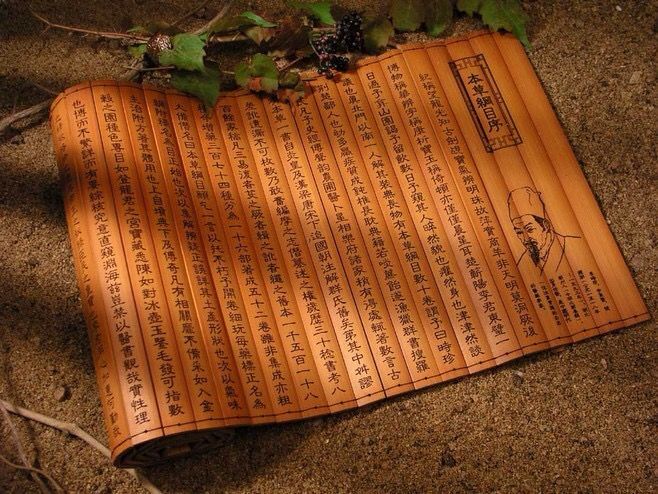 本草綱目序
紀稱望龍光知古劍覘寶氣辨明珠故萍實商羊非天明莫洞厥後
博物稱華辨字稱康析寶玉稱倚頓亦僅僅晨星耳楚蘄陽李君東璧一
日過予弇山園謁予留飲數日予窺其人睟然貌也癯然身也津津然談
議也真北斗以南一人解其裝無長物有本草綱目數十卷謂予曰時珍
荊楚鄙人也幼多羸疾質成鈍椎長耽典籍若啖蔗飴遂漁獵群書搜羅
百氏凡子史經傳聲韵農圃醫卜星相樂府諸家稍有得處輒著數言古
有本草一書自炎皇及漢梁唐宋下迨國朝注解群氏舊矣第其中舛謬
差訛遺漏不可枚數乃敢奮編摩之志僭纂述之權歲歷三十稔書考八
百餘家稿凡三易復者芟之闕者緝之訛者繩之舊本一千五百一十八
種今增藥三百七十四種分為一十六部著成五十二卷雖非集成亦粗
大備僭名曰本草綱目願乞一言以托不朽予開卷細玩每藥標正名為
綱附釋名為目正始也次以集解辨疑正誤詳其土產形狀也次以氣味
主治附方著其體用也上自墳典下及傳奇凡有相關靡不備采如入金
谷之園種色奪目如登龍君之宮寶藏悉陳如對冰壺玉鑒毛髮可指數
也博而不繁詳而有要綜核究竟直窺淵海茲豈禁以醫書覯哉實性理